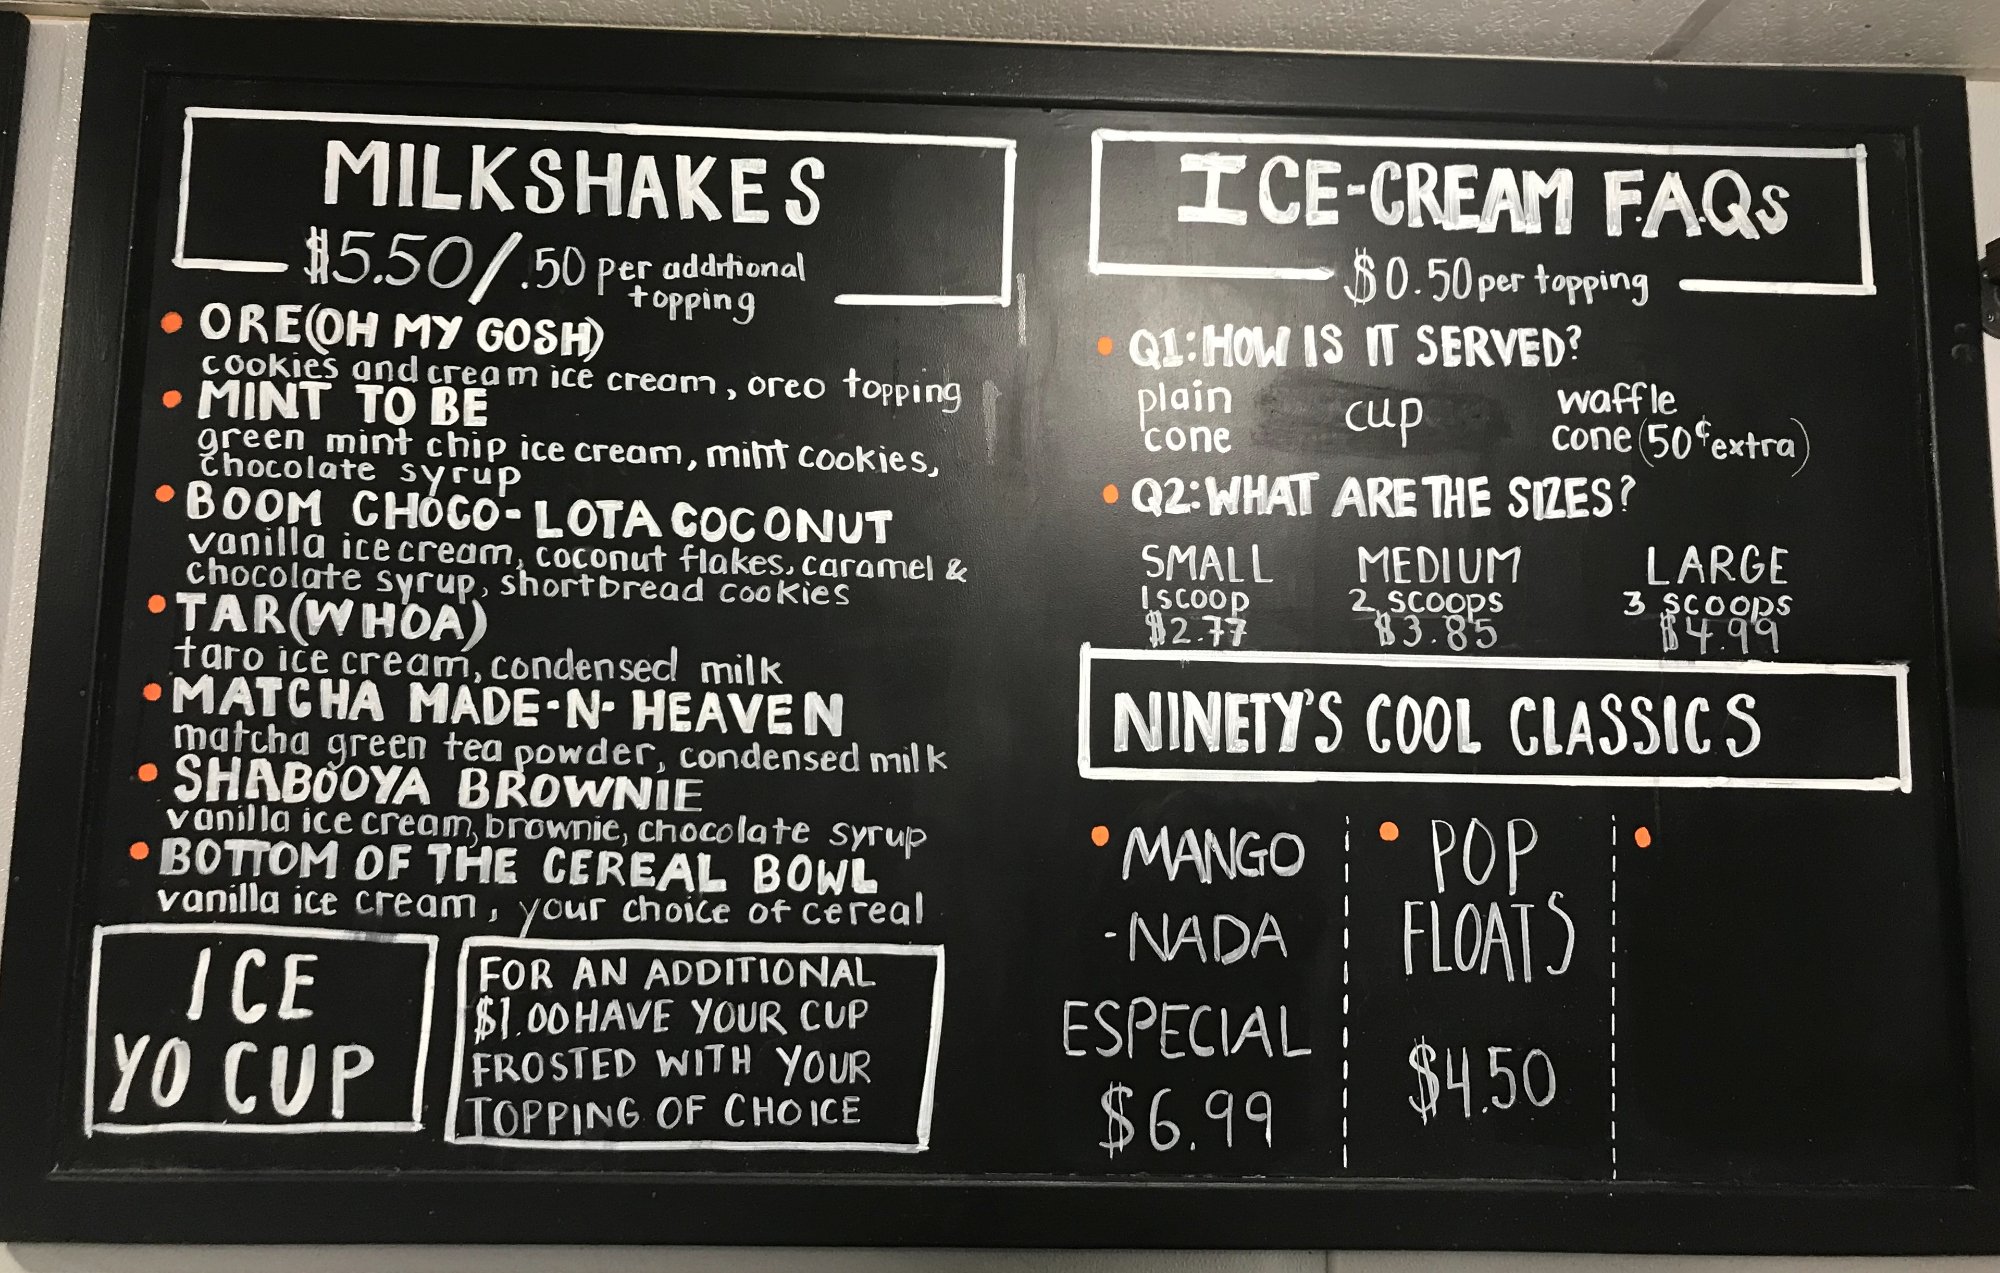 MILKSHAKES
$5.50/.50 per additional
topping
ORE(OH MY GOSH)
cookies and cream ice cream, oreo topping
MINT TO BE
green mint chip ice cream, mint cookies,
chocolate syrup
BOOM CHOCO-LOTA COCONUT
vanilla ice cream, coconut flakes, caramel &
chocolate syrup, shortbread cookies
TAR(WHOA)
taro ice cream, condensed milk
MATCHA MADE-N-HEAVEN
matcha green tea powder, condensed milk
SHABOOYA BROWNIE
vanilla ice cream, brownie, chocolate syrup
BOTTOM OF THE CEREAL BOWL
vanilla ice cream, your choice of cereal
ICE
YO CUP
FOR AN ADDITIONAL
$1.00 HAVE YOUR CUP
FROSTED WITH YOUR
TOPPING OF CHOICE
ICE-CREAM F.A.Qs
$0.50 per topping
Q1: HOW IS IT SERVED?
plain cone
cup
waffle cone (50¢ extra)
Q2: WHAT ARE THE SIZES?
SMALL MEDIUM LARGE
1 SCOOP 2 SCOOPS 3 SCOOPS
$2.77 $3.85 $4.99
NINETY'S COOL CLASSICS
MANGO
-NADA
ESPECIAL
$6.99
POP
FLOATS
$4.50